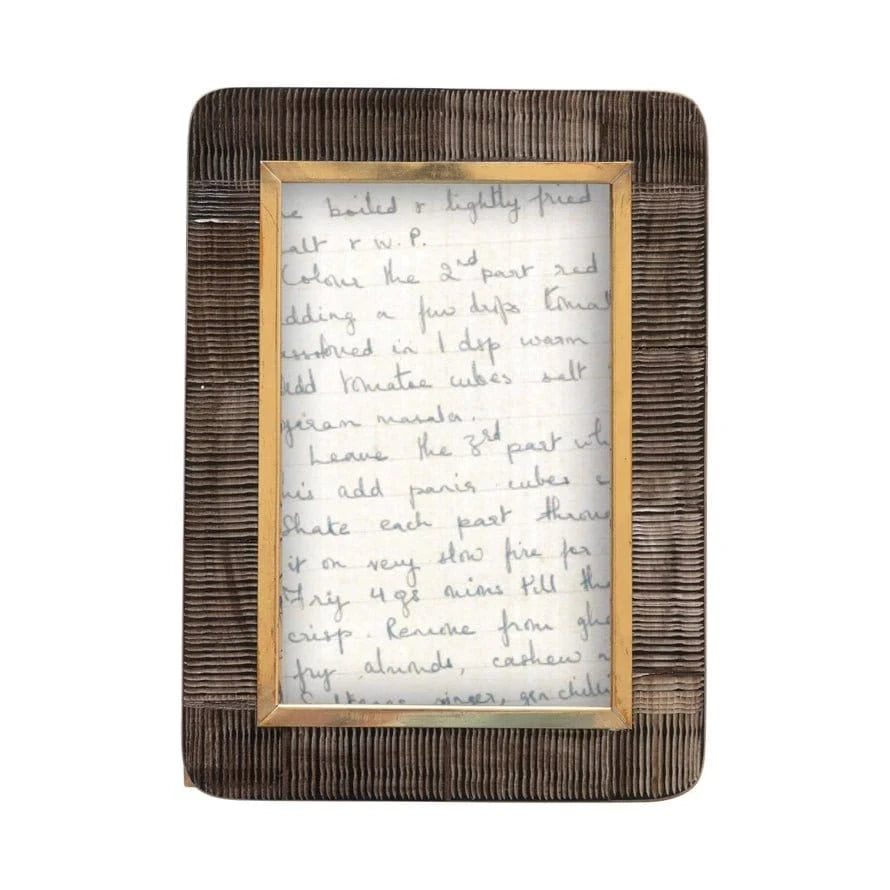 e boiled & lightly fried
alt & W.P.
Colour the 2nd part red
dding a few drops tomat
issolved in 1 dsp warm
Add tomatoe cubes salt
garam masala.
Leave the 3rd part wh
his add panir cubes
Shake each part throu
it on very slow fire for
Fry 4 gs onions till the
crisp. Remove from ghe
fry almonds, cashew n
ginger, gn chilli